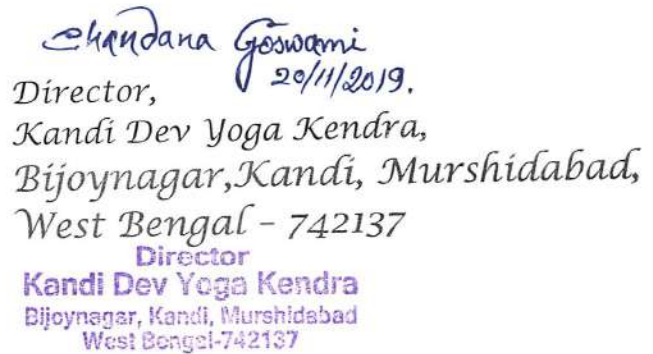 Chandana Goswami
20/11/2019.
Director,
Kandi Dev Yoga Kendra,
Bijoynagar,Kandi, Murshidabad,
West Bengal - 742137
Director
Kandi Dev Yoga Kendra
Bijoynagar, Kandi, Murshidabad
West Bengal-742137